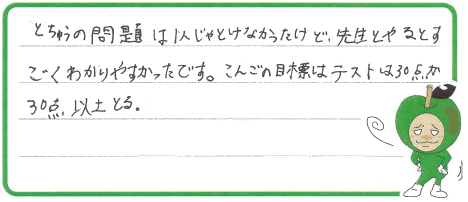 とちゅうの問題は1人じゃとけなかったけど、先生とやるとす
ごくわかりやすかったです。こんごの目標はテストは30点か
30点以上とる。